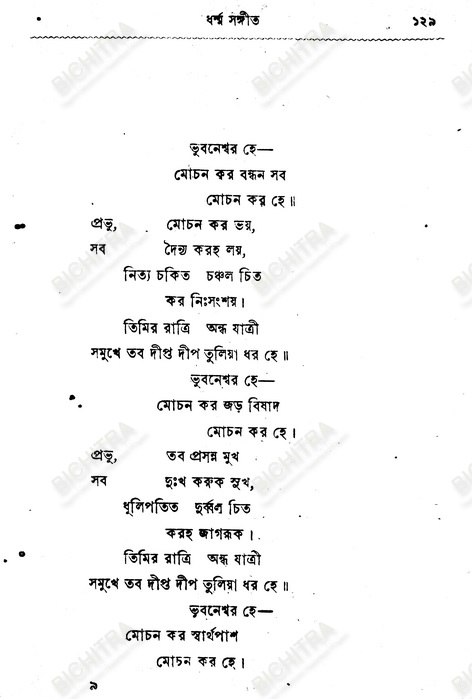 ধর্ম্ম সঙ্গীত ১২৯
ভুবনেশ্বর হে—
মোচন কর বন্ধন সব
মোচন কর হে॥
প্রভু, মোচন কর ভয়,
সব দৈন্য করহ লয়,
নিত্য চকিত চঞ্চল চিত
কর নিঃসংশয়।
তিমির রাত্রি অন্ধ যাত্রী
সমুখে তব দীপ্ত দীপ তুলিয়া ধর হে॥
ভুবনেশ্বর হে—
মোচন কর জড় বিষাদ
মোচন কর হে।
প্রভু, তব প্রসন্ন মুখ
সব দুঃখ করুক সুখ,
ধূলিপতিত দুর্ব্বল চিত
করহ জাগরূক।
তিমির রাত্রি অন্ধ যাত্রী
সমুখে তব দীপ্ত দীপ তুলিয়া ধর হে॥
ভুবনেশ্বর হে—
মোচন কর স্বার্থপাশ
মোচন কর হে।
৯
BICHITRA
BICHITRA
BICHITRA
BICHITRA
BICHITRA
BICHITRA
BICHITRA
BICHITRA
BICHITRA